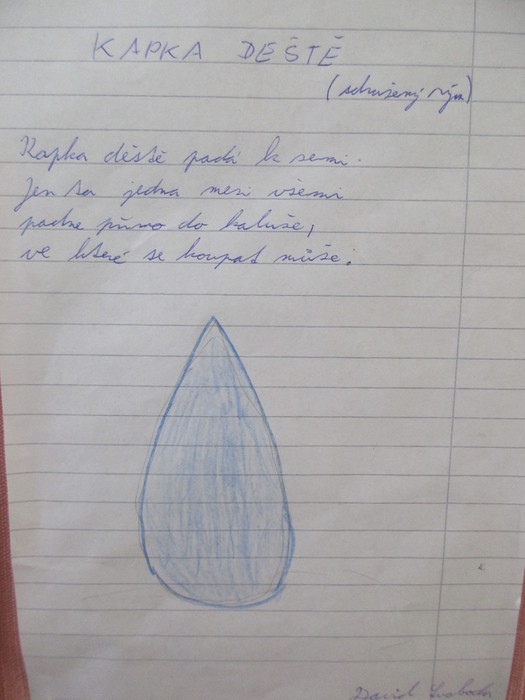 KAPKA DEŠTĚ
(sdružený rým)
Kapka deště padá k zemi.
Jen ta jedna mezi všemi
padne přímo do kaluže,
ve které se koupat může.
David Svoboda